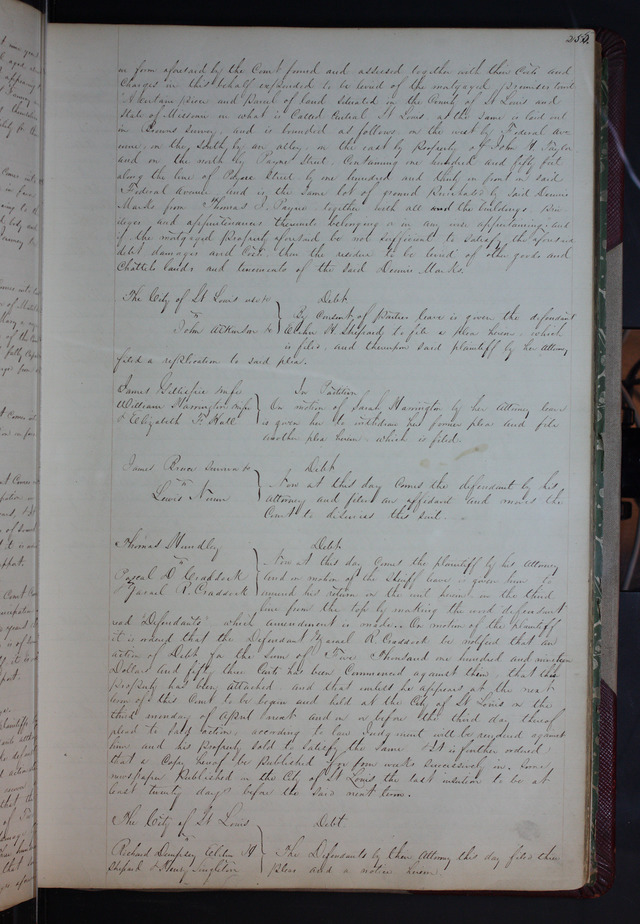 256.
in form aforesaid by the Court found and assessed together with their Costs and
Charges in this behalf expended to be levied of the mortgaged premises towit
"A certain piece and parcel of land situated in the County of St Louis and
State of Missouri in what is Called Central St Louis, as the same is laid out
in survey, and is bounded as follows, on the west by Federal Ave
nue, on the South by an alley, on the east by property of John H
and on the north by Payne Street. Containing one hundred and fifty feet
along the line of Street by one hundred and thirty in front on said
Federal Avenue and is the same lot of ground purchased by said Dennis
Marks from Thomas J. Payne together with all and the buildings, privi
leges and appurtenances thereunto belonging or in any wise appertaining, and
if the mortgaged property aforesaid be not sufficient to satisfy the aforesaid
debt damages and Costs, then the residue to be levied of other goods and
Chattels lands and tenements of the said Dennis Marks.
The City of St Louis use &c
vs
John Atkinson &c
Debt
By Consent of parties leave is given the defendant
H Shepard to file a plea herein, which
is filed, and thereupon said plaintiff by her Attorney
filed a replication to said plea.
James Gillespie wife
William Harrington wife
& Elizabeth F. Hall
In Partition
On motion of Sarah Harrington by her Attorney leave
is given her to withdraw her former plea and file
another plea herein, which is filed.
James &c
vs
Lewis
Debt
Now at this day comes the defendant by his
Attorney and files an affidavit and moves the
Court to dismiss this suit.
Thomas Hundley
vs
Pascal D Craddock
& R. Craddock
Debt
Now at this day comes the plaintiff by his Attorney
and on motion of the Sheriff leave is given him to
amend his return on the writ herein in the third
line from the top by making the word defendant
read "Defendants" which amendment is made. On motion of the plaintiff
it is ordered that the Defendant R. Craddock be notified that an
action of Debt for the Sum of Five Thousand one hundred and nineteen
Dollars and fifty three Cents has been Commenced against them, that their
property has been attached, and that unless he appears at the next
term of this Court, to be begun and held at the City of St Louis on the
third monday of April next and on or before the third day thereof
plead to said action, according to law Judgment will be rendered against
him and his property sold to satisfy the Same. It is further ordered
that a Copy hereof be published for four weeks successively in some
newspaper published in the City of St Louis the last insertion to be at
least twenty days before the said next term.
The City of St Louis
vs
Richard Dempsey H
Shepard & Henry Singleton
Debt
The Defendants by their Attorney this day filed their
pleas and a notice herein.